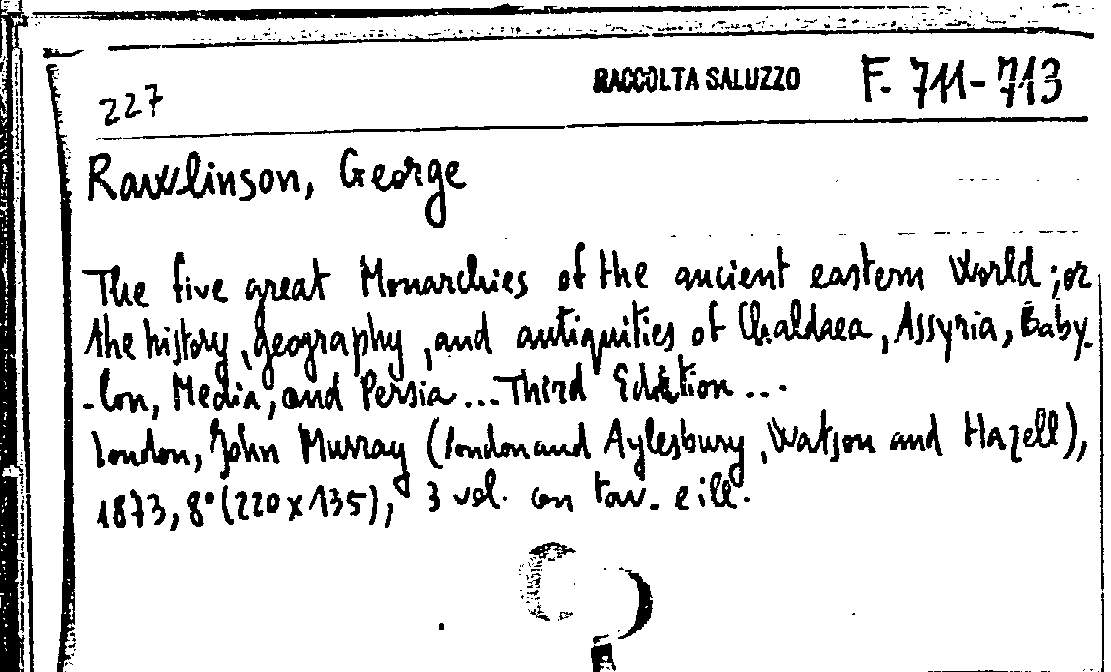 227 RACCOLTA SALUZZO F. 711-713
Rawlinson, George
The five great Monarchies of the ancient eastern World; or
the history, geography, and antiquities of Chaldaea, Assyria, Baby-
-lon, Media, and Persia... Third Edition...
London, John Murray (London and Aylesbury, Watson and Hazell),
1873, 8° (220 x 135), 3 vol. con tav. e ill.